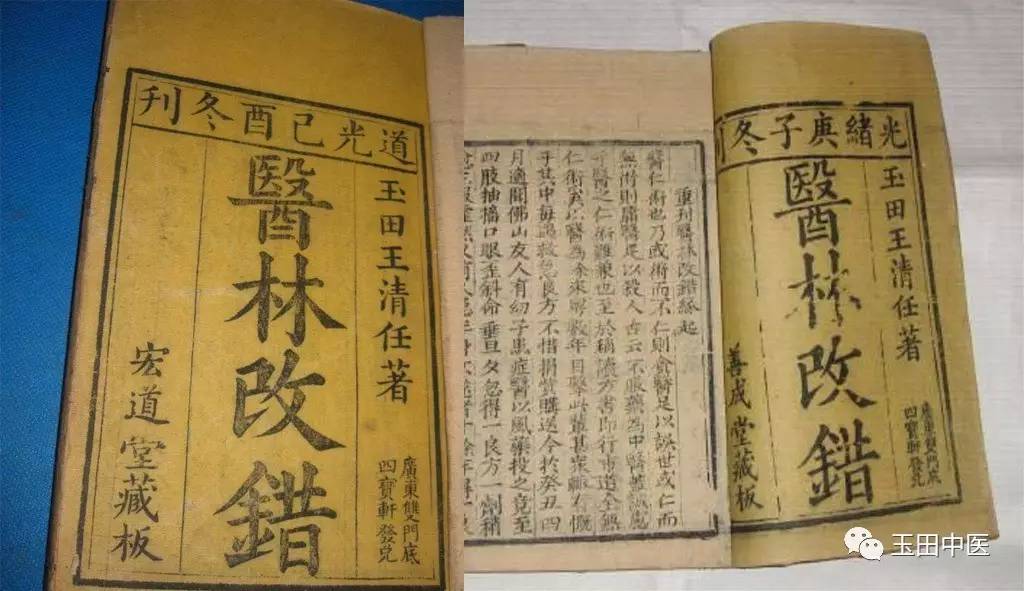 道光己酉冬刊
玉田王清任著
廣東雙門底
四寶軒發兌
醫林改錯
宏道堂藏板
重刊醫林改錯緣起
醫仁術也乃或術而不仁則貪醫足以誤世或仁而
無術則庸醫足以殺人古云不服藥為中醫蓋誠慮
乎醫之仁術難兼也至於稿懷方書即行市道全無
仁術實以醫為余來粵數年目擊此輩甚衆輒有慨
于其中每遇救急良方不惜捐貲購送今於癸丑四
月適聞佛山友人有幼子患症醫以風藥投之竟至
四肢抽搐口眼歪斜命垂旦夕忽得一良方一劑稍
光緒庚子冬
玉田王清任著
廣東雙門底
四寶軒發兌
醫林改錯
善成堂藏板
玉田中医